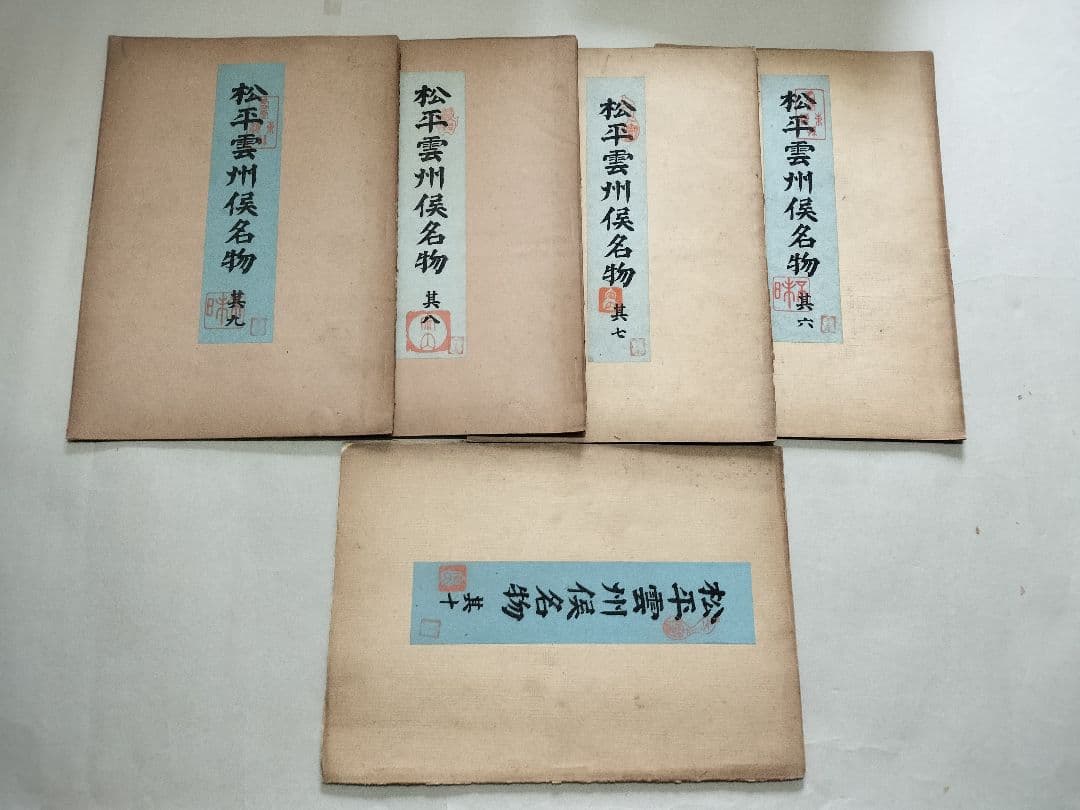 松平雲州侯名物 其六
松平雲州侯名物 其七
松平雲州侯名物 其八
松平雲州侯名物 其九
松平雲州侯名物 其十